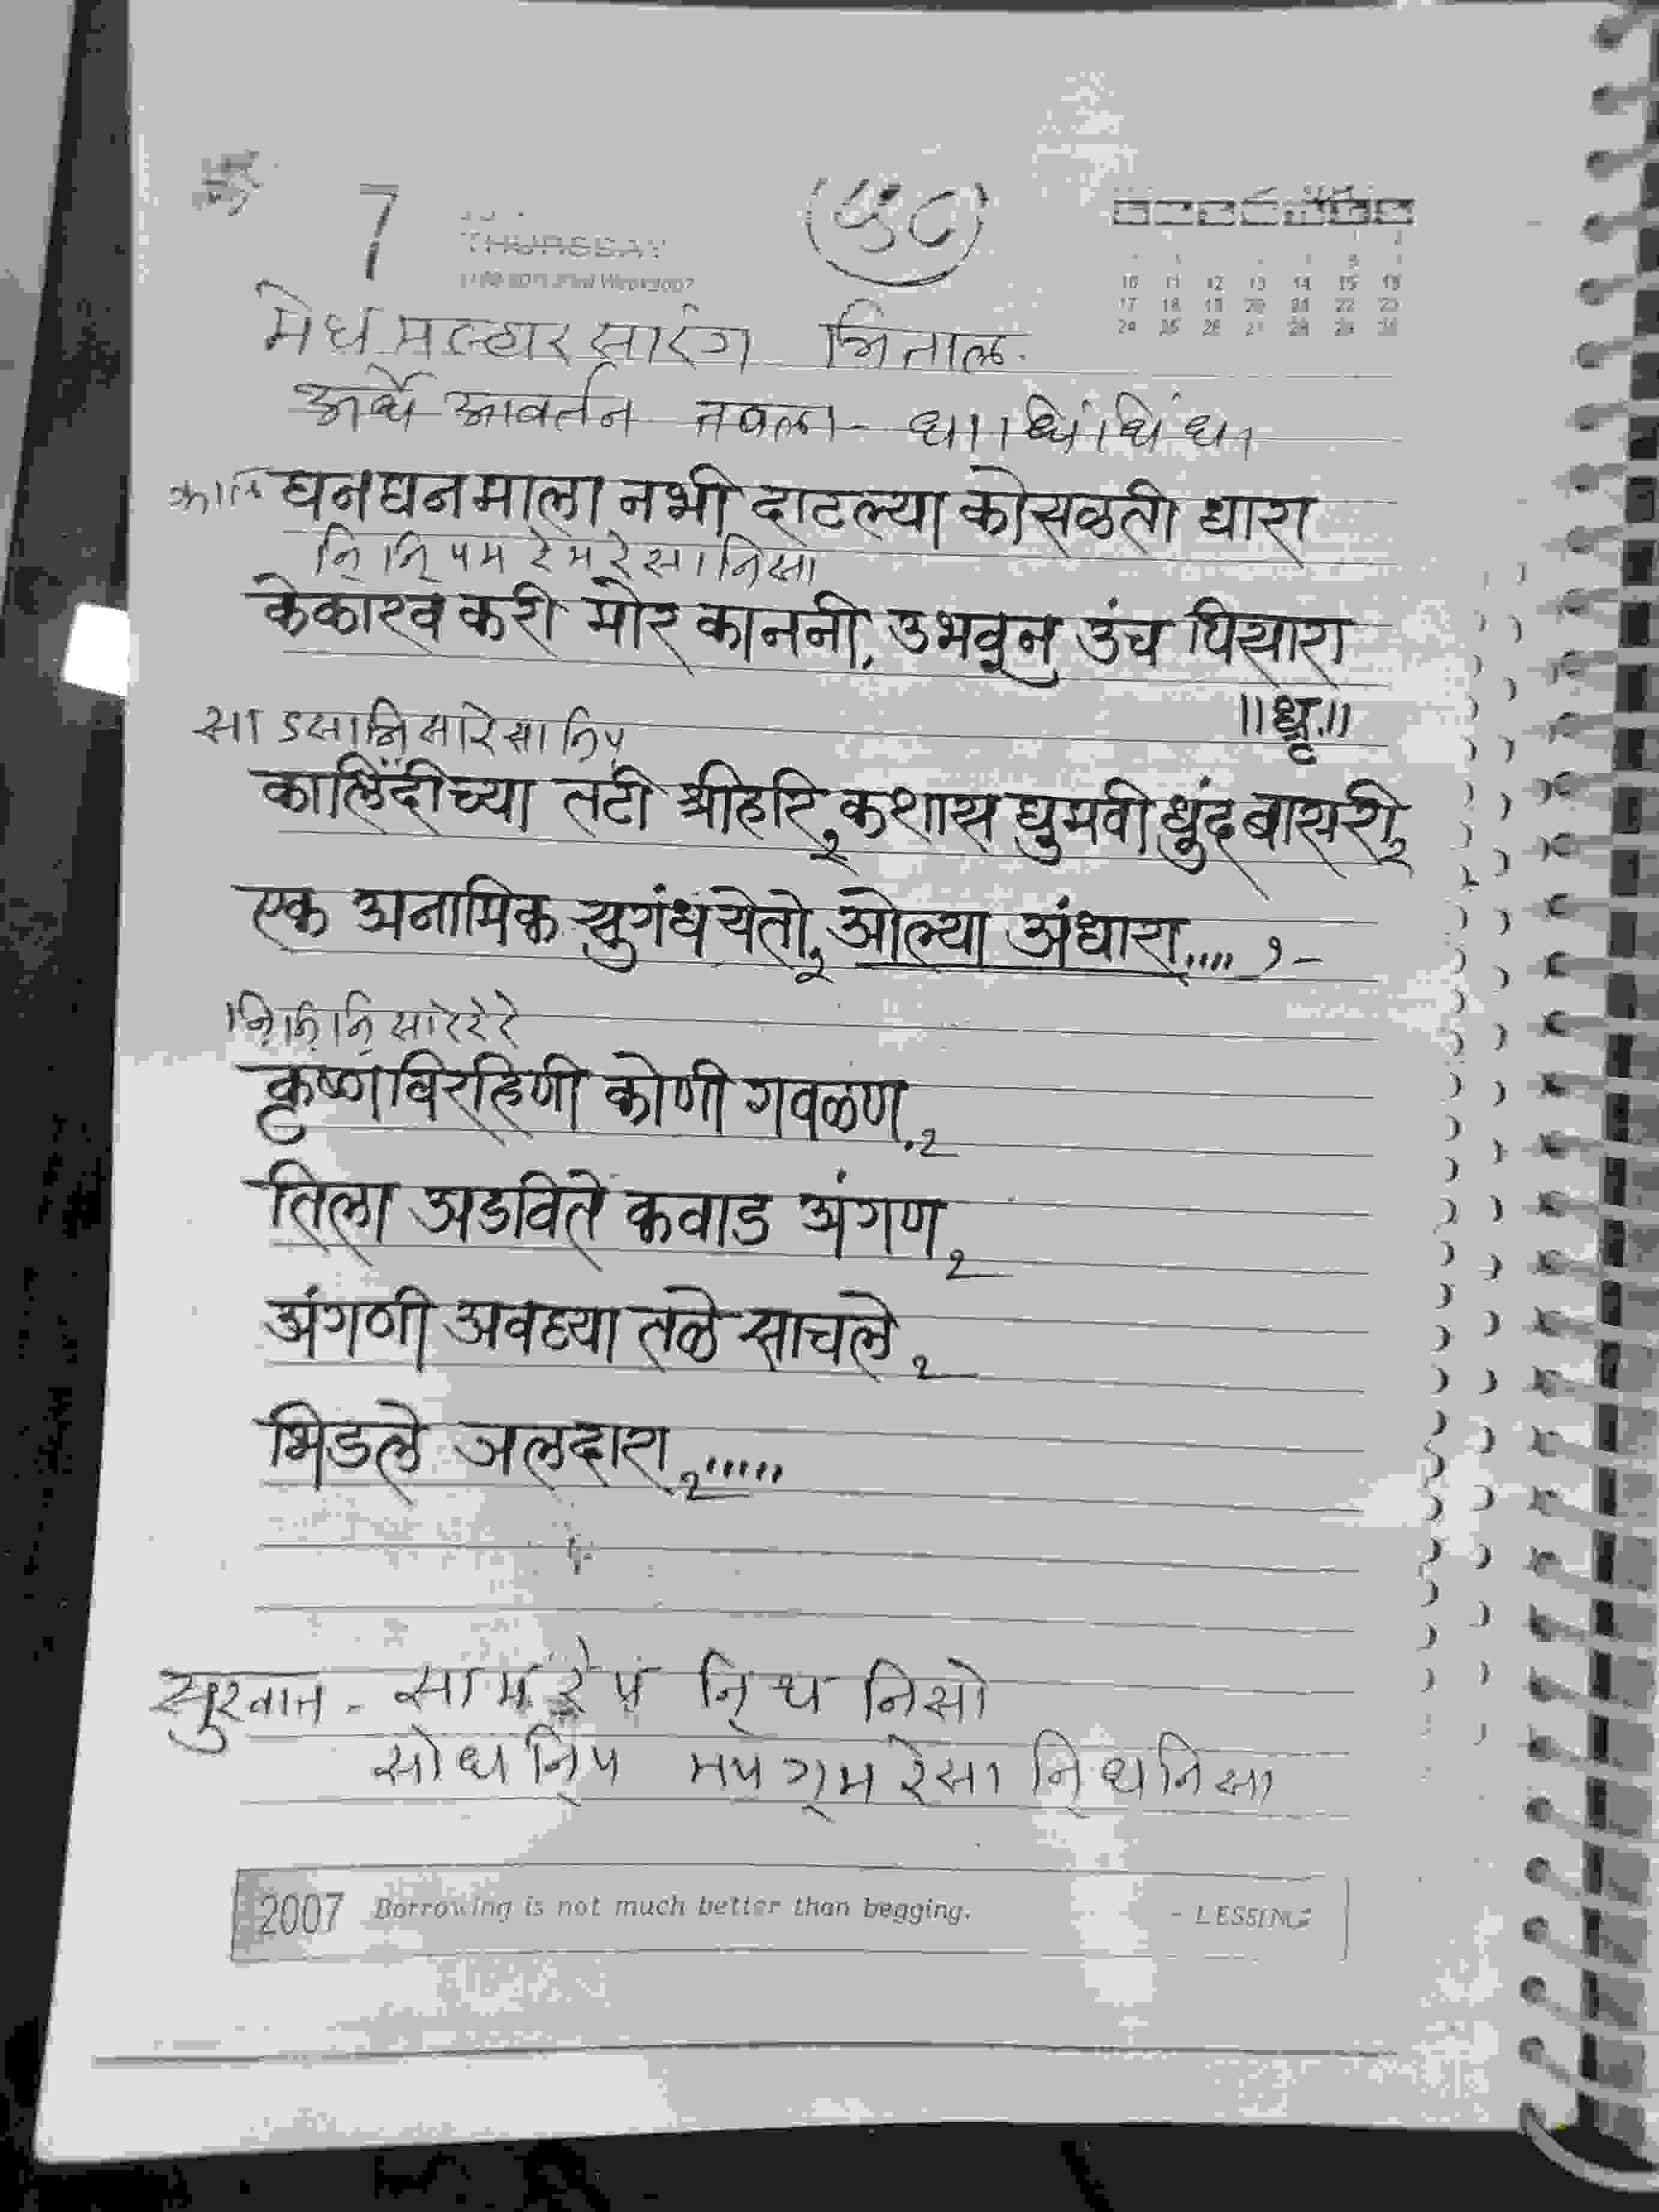 7 THURSDAY (५८)
10 11 12 13 14 15 16
17 18 19 20 21 22 23
24 25 26 27 28 29 30
मेघ मल्हार सारंग त्रिताल.
अर्धे आवर्तन तबला - धा। धिं । धिं धा
घनघनमाला नभी दाटल्या कोसळती धारा
नि् नि् प म रे म रे सा नि सा
केकारव करी मोर काननी, उभवून उंच पिसारा
॥धृ.॥
सा ऽ सा नि सा रे सा नि प
कालिंदीच्या तटी श्रीहरि,२ कशास घुमवी धुंद बासरी,२
एक अनामिक सुगंध येतो,२ ओल्या अंधारा.... १-
नि् नि् नि् सा रे रे रे
कृष्णविरहिणी कोणी गवळण,२
तिला अडविते कवाड अंगण,२
अंगणी अवघ्या तळे साचले,२
भिडले जलदारा,२.....
सुरवात - सा म रे प नि् ध नि सां
सां ध नि् प म प ग् म रे सा नि् ध नि सा
2007 Borrowing is not much better than begging. - LESSING